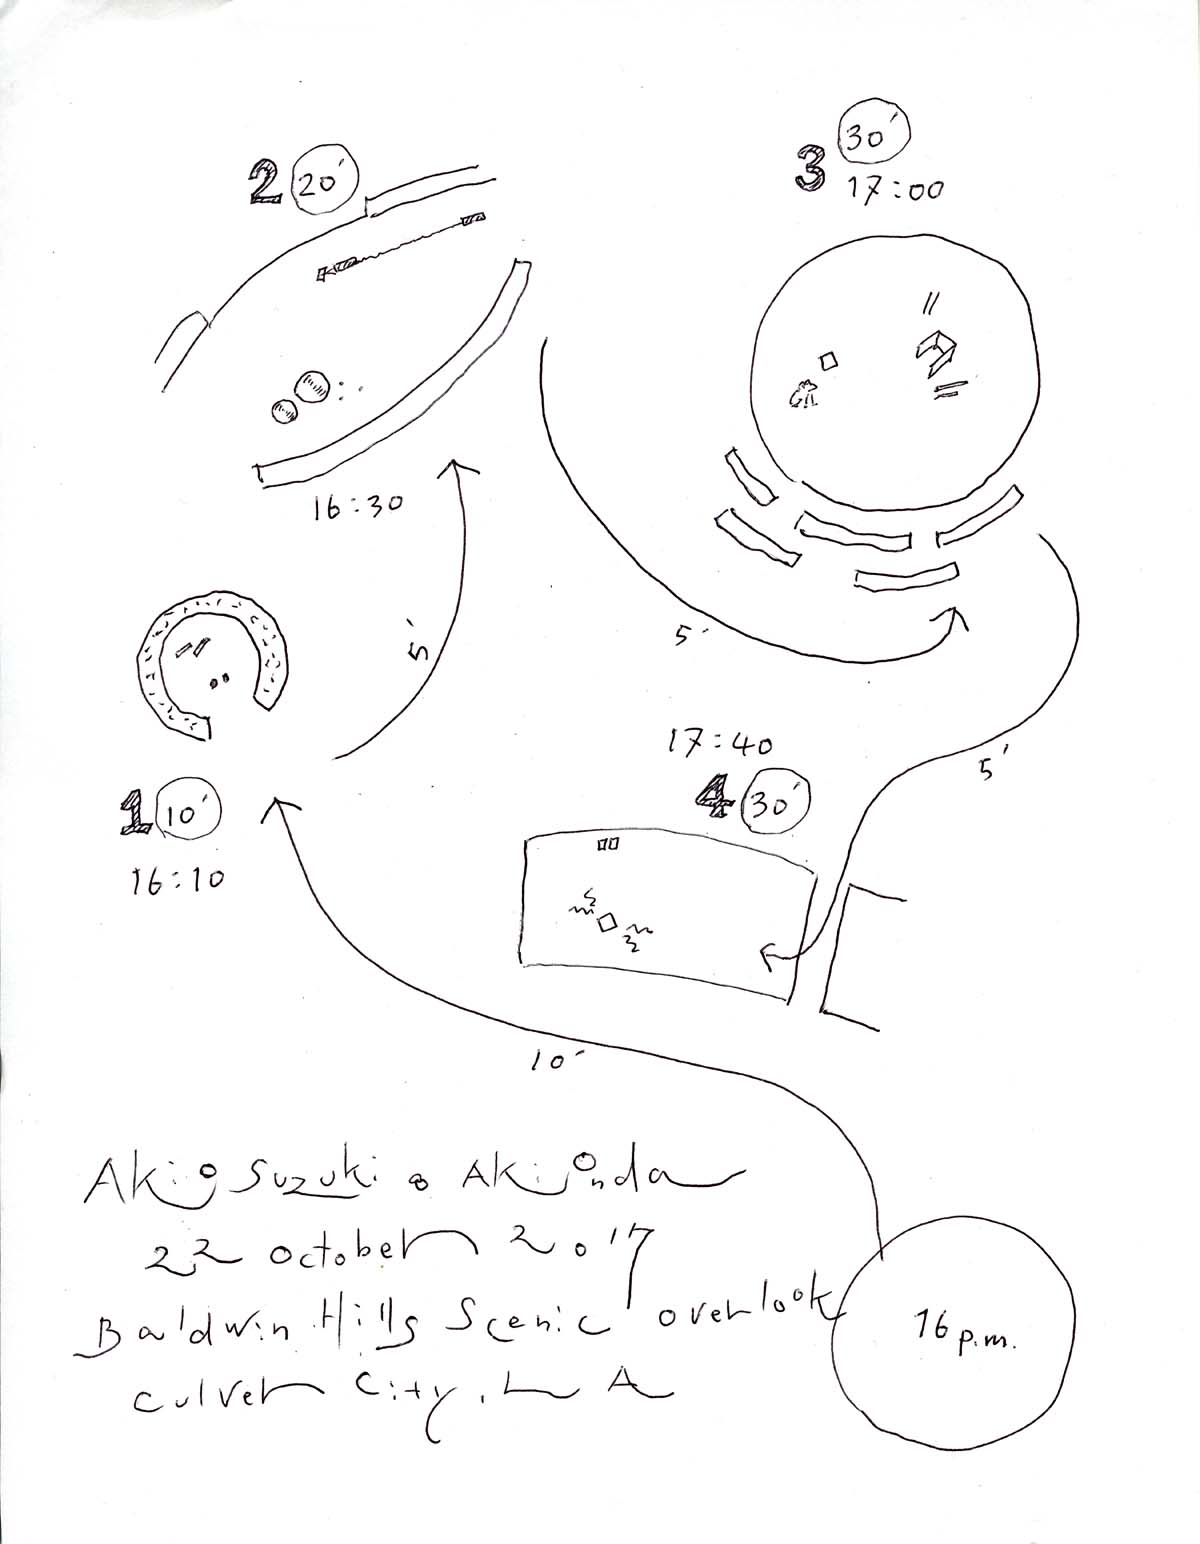 2 20′
3 30′
17:00
16:30
5′
5′
1 10′
16:10
17:40
4 30′
5′
10′
Akio Suzuki & Aki Onda
22 october 2017
Baldwin Hills Scenic overlook
culver City, LA
16 p.m.